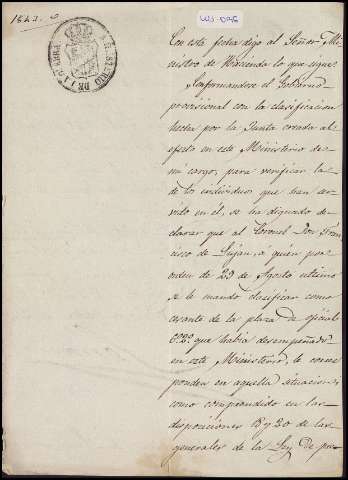 1843.
MINISTERIO DE LA GUERRA
Con esta fecha digo al Señor Mi-
nistro de Hacienda lo que sigue
Conformandose el Gobierno
provisional con la clasificacion
hecha por la Junta creada al
efecto en este Ministerio de
mi cargo, para verificar la
de los individuos que han ser
vido en él, se ha dignado de-
clarar que al Coronel Don Fran
cisco de Lujan, á quien por
orden de 29 de Agosto ultimo
se le mandó clasificar como
cesante de la plaza de oficial
6.º 2.º que habia desempeñado
en este Ministerio, le corres
ponden en aquella situacion,
como comprendido en las
disposiciones 18 y 20 de las
generales de la Ley de pre-